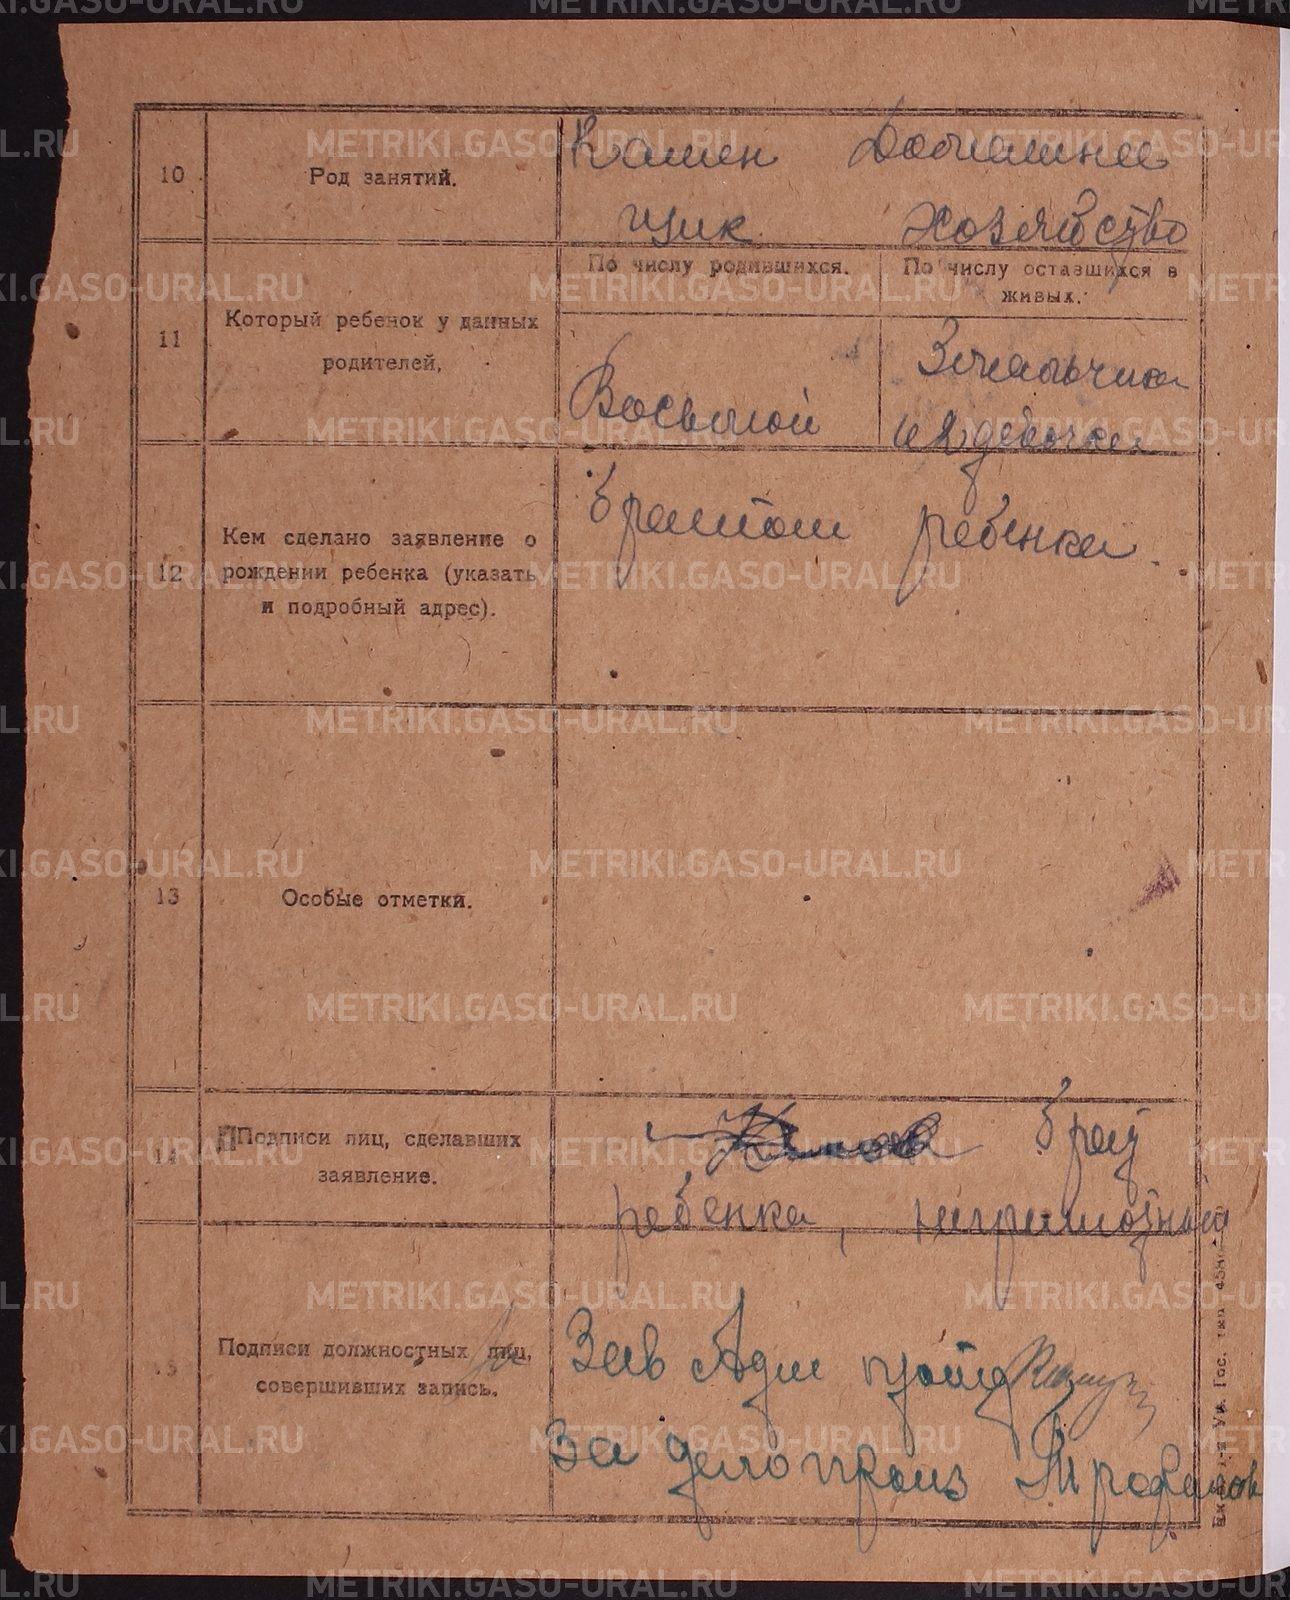 10
Род занятий.
Камен
щик
Домашнее
хозяйство
11
Который ребенок у данных
родителей,
По числу родившихся.
Восьмой
По числу оставшихся в
живых.
3 мальчика
и 2 девочки
12
Кем сделано заявление о
рождении ребенка (указать
и подробный адрес).
братом ребенка.
13
Особые отметки.
14
Подписи лиц, сделавших
заявление.
брат
ребенка, неграмотный
15
Подписи должностных лиц,
совершивших запись.
Зав Адм
За делопроиз
METRIKI.GASO-URAL.RU